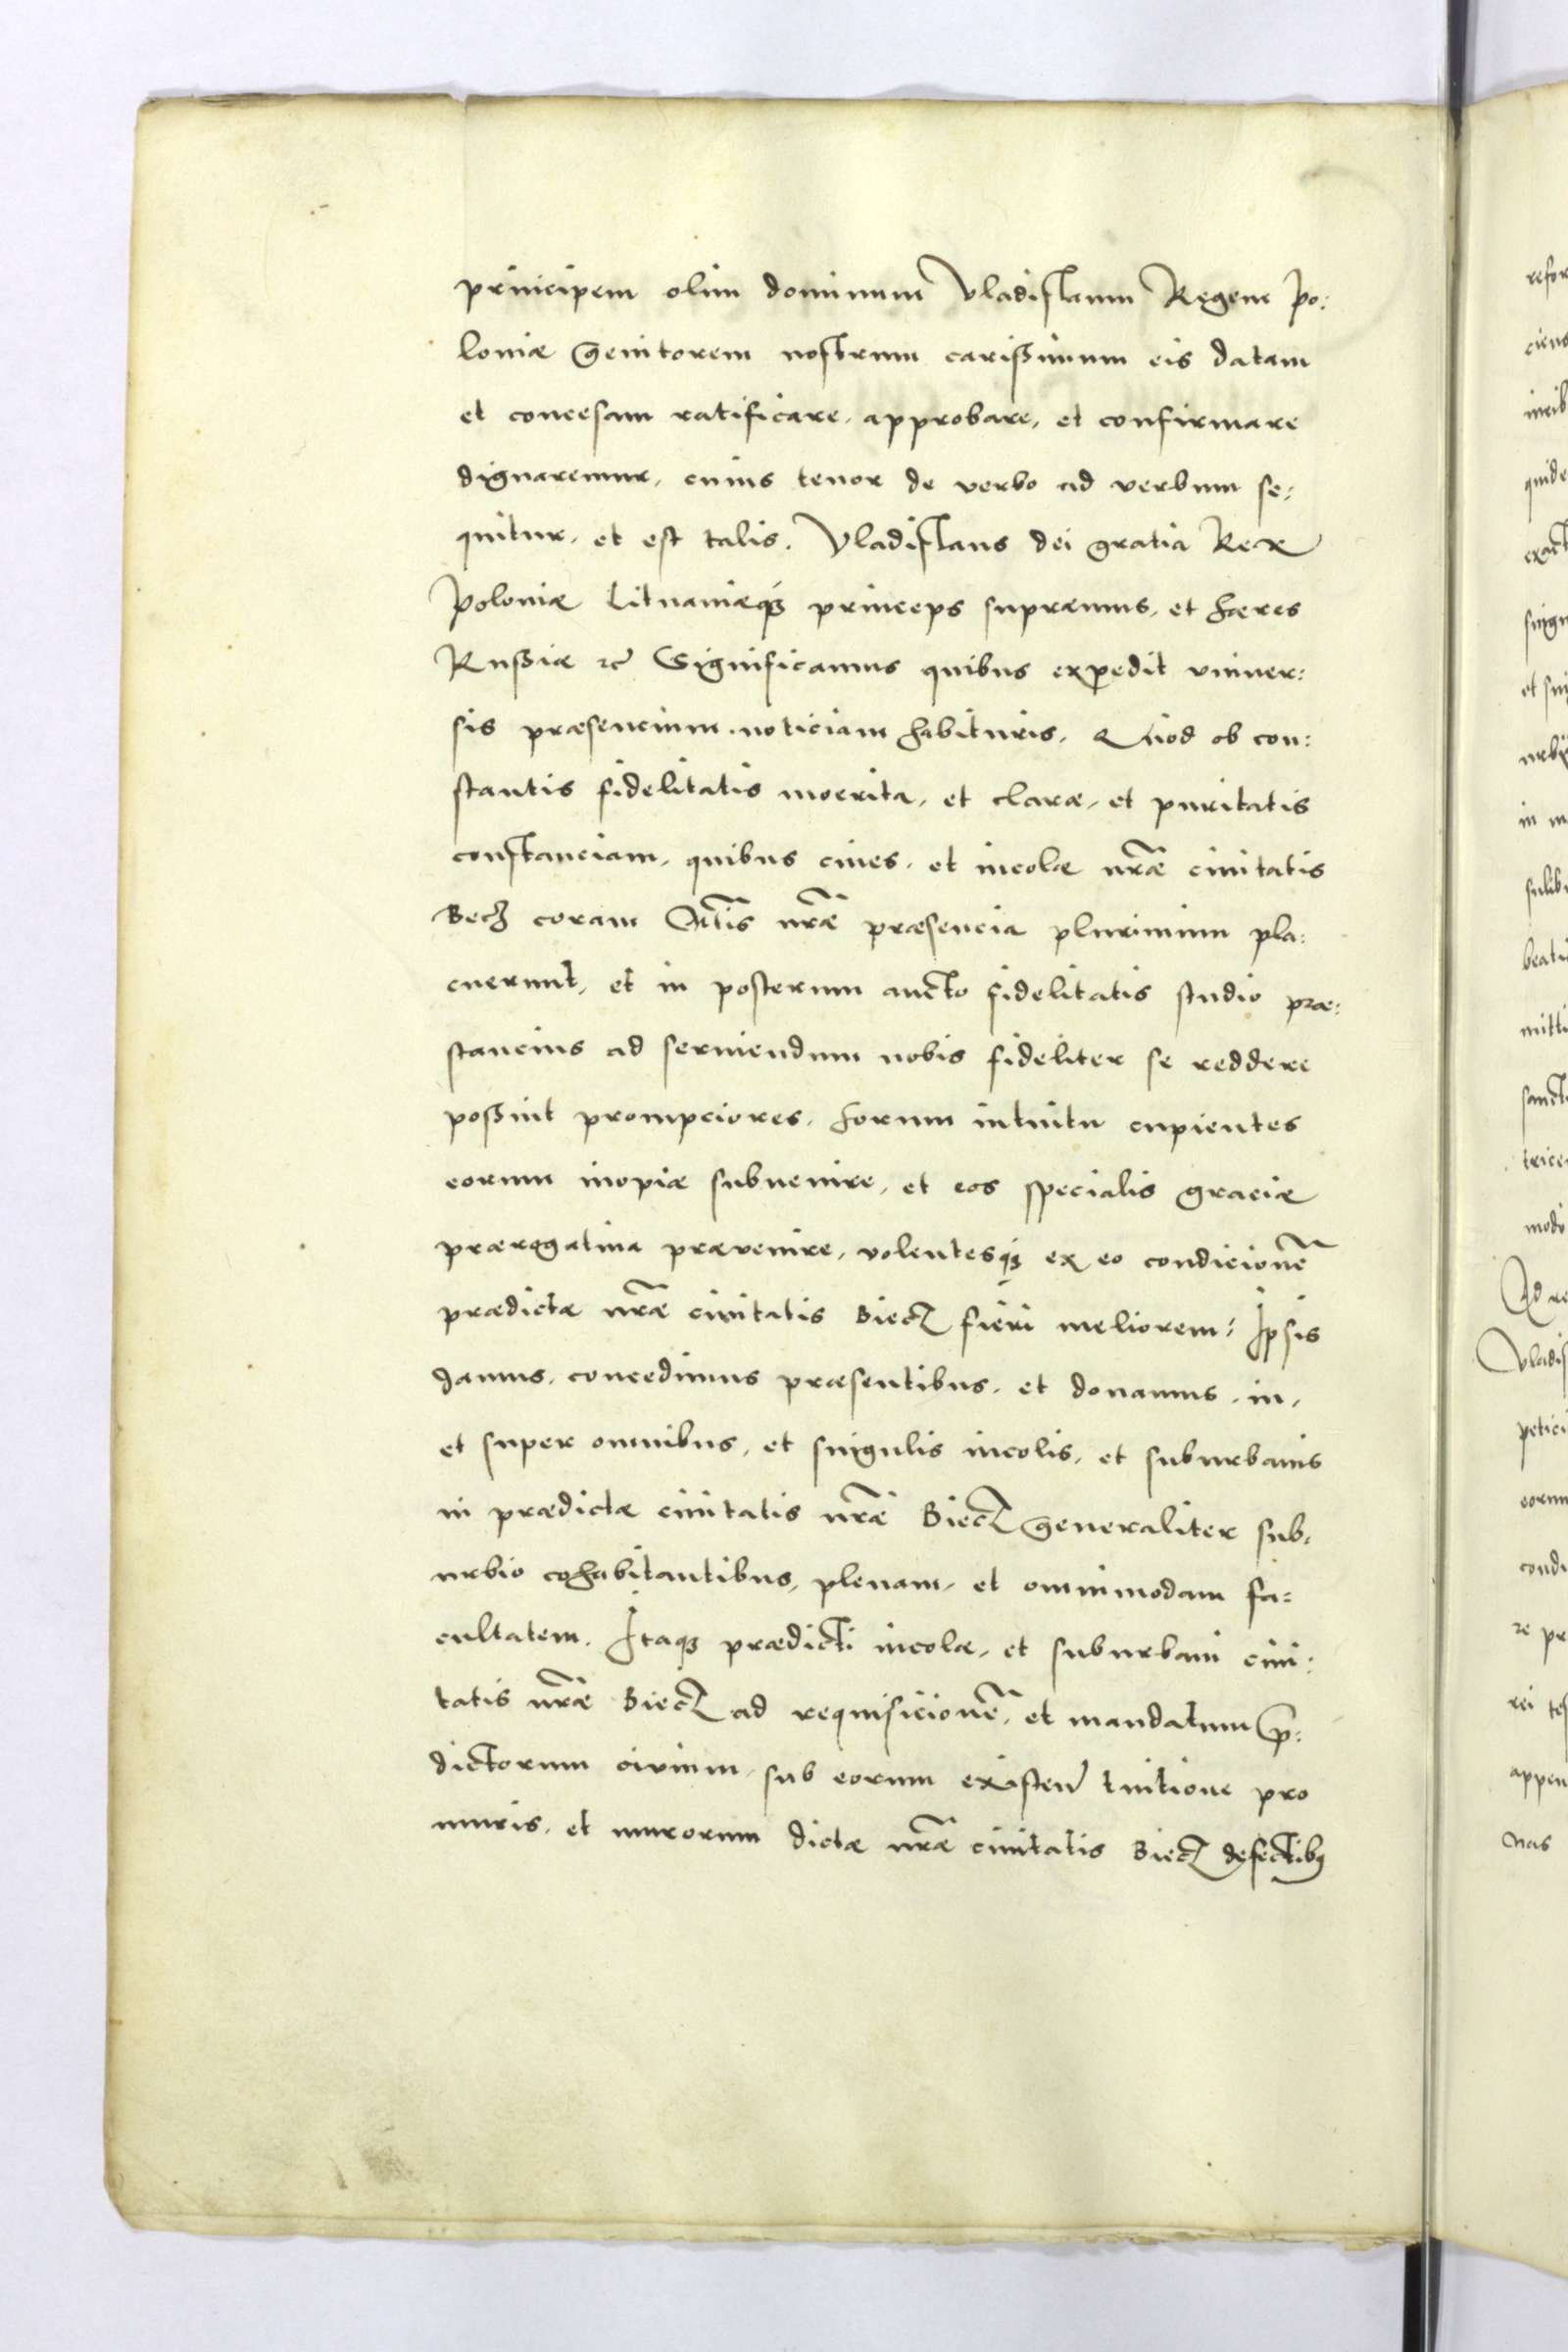 principem olim dominum Vladislaum Regem Po:
loniæ genitorem nostrum carißimum eis datam
et concesam ratificare, approbare, et confirmare
dignaremur, cuius tenor de verbo ad verbum se:
quitur, et est talis. Vladislaus dei gratia Rex
Poloniæ Lituaniæq₃ princeps supræmus, et hæres
Rußiæ ⁊c̃ Significamus quibus expedit vniuer:
sis præsencium noticiam habituris, Quod ob con:
stantis fidelitatis moerita, et claræ, et puritatis
constanciam, quibus ciues, et incolæ nr̃æ ciuitatis
Becz coram Mt̃is nr̃æ præsencia plurimum pla:
cuerunt, et in posterum aucto fidelitatis studio præ:
stancius ad seruiendum nobis fideliter se reddere
poßint prompciores, horum intuitu cupientes
eorum inopiæ subuenire, et eos specialis graciæ
prærogatiua prævenire, volentesq₃ ex eo condicionẽ
prædictæ nr̃æ ciuitatis Biecz fieri meliorem: Ipsis
damus, concedimus præsentibus, et donamus, in,
et super omnibus, et singulis incolis, et suburbanis
in prædictæ ciuitatis nr̃æ Biecz generaliter sub,
urbio cohabitantibus, plenam, et omnimodam fa:
cultatem. Itaq₃ prædicti incolæ, et suburbani ciui:
tatis nr̃æ Biecz ad requisicionẽ, et mandatum p̃:
dictorum civium, sub eorum existeñ tuitione pro
muris, et murorum dictæ nr̃æ ciuitatis Biecz defectibꝰ
refor
quide
exact
singu
et sin
in m
beati
mitti
sanct
trice
modo
Ad re
Vladis
petici
eorum
condi
re pr
rei tes
appen
nas